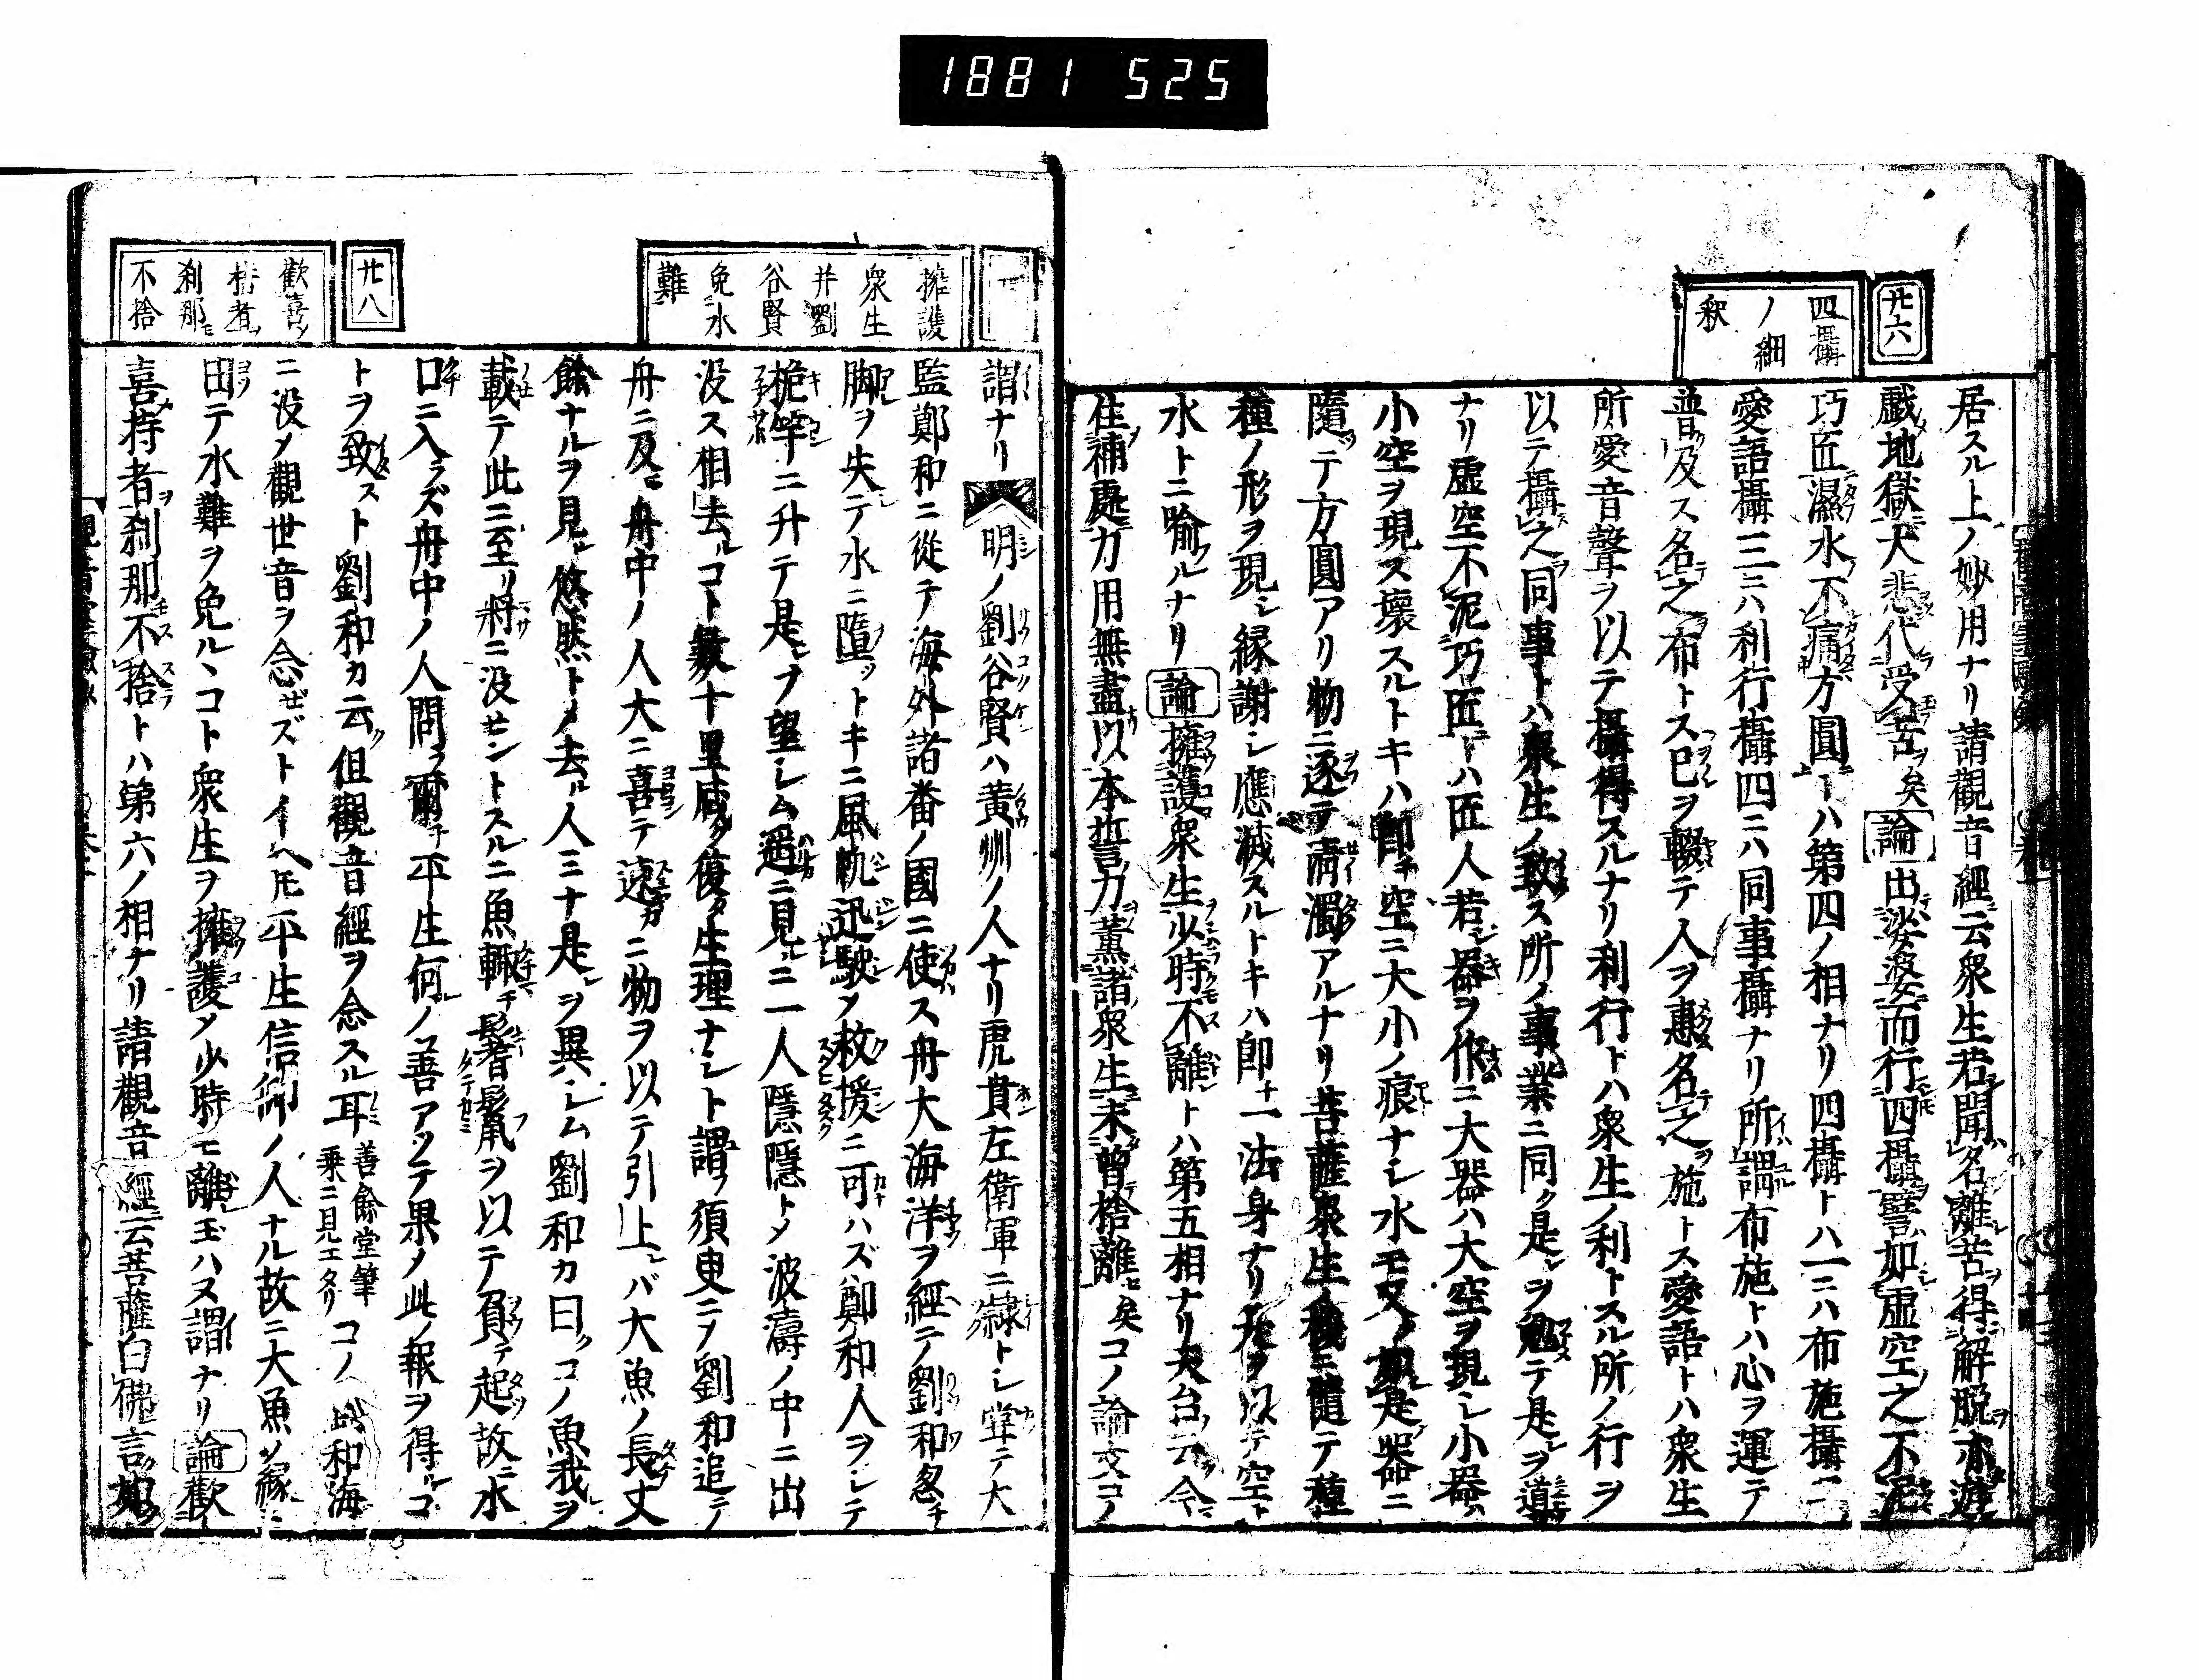 1881 525
廿六
四攝
ノ細
釈
居スル上ノ妙用ナリ請觀音經云衆生若聞名離苦得解脱亦遊
戯地獄大悲代受苦矣論出娑婆而行四攝譬如虚空之不泥
巧匠濕水不痛方圓トハ第四ノ相ナリ四攝トハ一ニハ布施攝二
愛語攝三ニハ利行攝四ニハ同事攝ナリ所謂布施トハ心ヲ運テ
普及ス名之布トス己ヲ輟テ人ヲ惠名之施トス愛語トハ衆生
所愛音聲ヲ以テ攝得スルナリ利行トハ衆生ノ利トスル所ノ行ヲ
以テ攝之同事トハ衆生ノ致ス所ノ事業ニ同ク是ヲ テ是ヲ導
ナリ虚空不泥巧匠トハ匠人若器ヲ作ニ大器ハ大空ヲ現シ小器ハ
小空ヲ現ス壊スルトキハ即チ空ニ大小ノ痕ナシ水モ又如是器ニ
隨テ方圓アリ物ニ逐テ淸濁アルナリ菩薩衆生ノ機ニ隨テ種
種ノ形ヲ現シ縁謝シ應滅スルトキハ即一法身ナリ 以テ空ト
水トニ喩ルナリ論擁護衆生少時不離トハ第五相ナリ天台云今
住補處力用無盡以本誓力薫諸衆生未曽捨離矣コノ論文コノ
擁護
衆生
并劉
谷賢
免水
難
謂ナリ明ノ劉谷賢ハ黄州ノ人ナリ虎賁左衛軍ニ隷トシ甞テ大
監鄭和ニ從テ海外諸番ノ國ニ使ス舟大海洋ヲ經テ劉和忽チ
脚ヲ失テ水ニ墮ットキニ風帆迅駛メ救援ニ可ハズ鄭和人ヲシテ
桅竿ニ升テ是ヲ望シム遥ニ見ルニ一人隱隱トメ波濤ノ中ニ出
没ス相去ルコト數十里咸ク復タ生理ナシト謂フ須臾ニメ劉和追テ
舟ニ及ニ舟中ノ人大ニ喜テ速カニ物ヲ以テ引上レバ大魚ノ長丈
餘ナルヲ見ル悠然トメ去ル人ミナ是ヲ異シム劉和カ曰コノ魚我ヲ
載テ此ニ至リ將ニ没セントスルニ魚輙チ髻鬣ヲ以テ負テ起ツ故ニ水
口ニ入ラズ舟中ノ人問フ爾チ平生何ノ善アッテ果メ此ノ報ヲ得ルコ
トヲ致スト劉和カ云但觀音經ヲ念スル耳善餘堂筆乗ニ見エタリコノ 和海
ニ没メ觀世音ヲ念ゼズトイヘトモ平生信仰ノ人ナル故ニ大魚ヲ縁ニ
田テ水難ヲ免ルヽコト衆生ヲ擁護メ少時モ離玉ハヌ謂ナリ論歡
喜持者刹那不捨トハ第六ノ相ナリ請觀音經云菩薩白佛言如
廿八
歡喜
持者ヲ
刹那モ
不捨